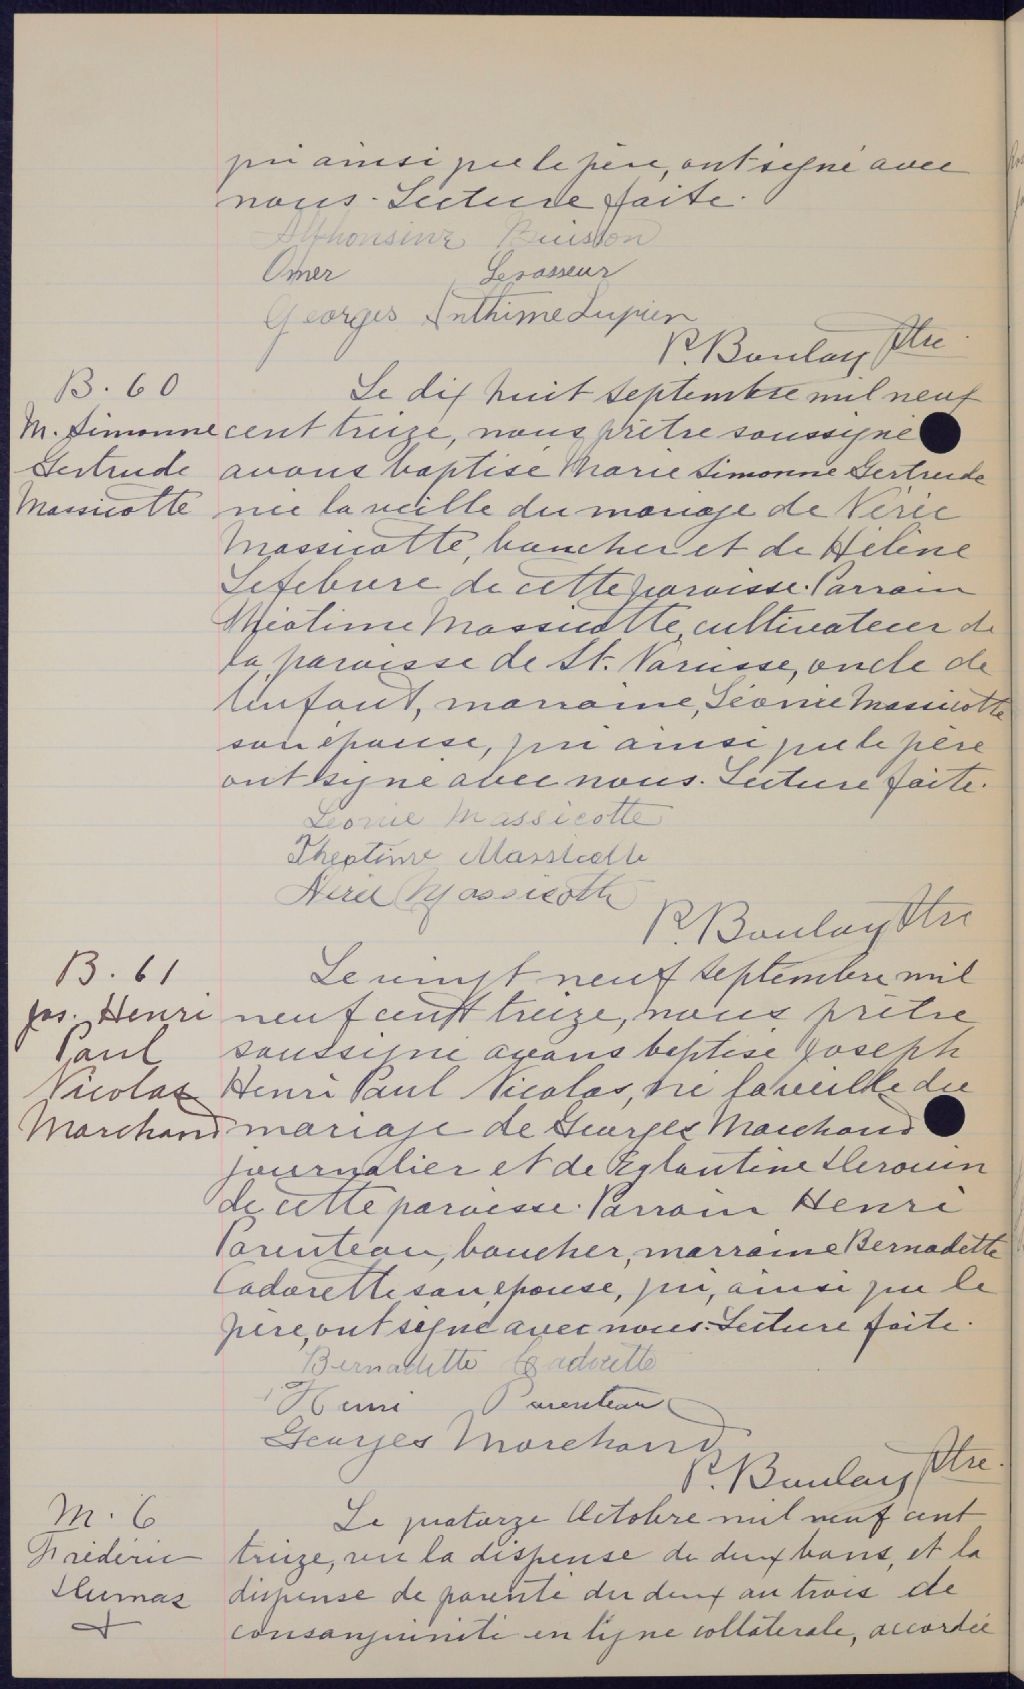 qui ainsi que le père, ont signé avec
nous. Lecture faite.
Alphonsine Buisson
Omer Levasseur
Georges Anthime Lupien
P. Boulay Ptre.
B. 60
M. Simonne
Gertrude
Massicotte
Le dix huit Septembre mil neuf
cent treize, nous prêtre soussigné
avons baptisé Marie Simonne Gertrude
née la veille du mariage de Nérée
Massicotte, boucher et de Hélène
Lefebvre de cette paroisse. Parrain
Théotime Massicotte, cultivateur de
la paroisse de St. Narcisse, oncle de
l'enfant, marraine, Léonie Massicotte
son épouse, qui ainsi que le père
ont signé avec nous. Lecture faite.
Leonie Massicotte
Theotime Massicotte
Nérée Massicotte
P. Boulay Ptre
B. 61
Jos. Henri
Paul
Nicolas
Marchand
Le vingt neuf Septembre mil
neuf cent treize, nous prêtre
soussigné avons baptisé Joseph
Henri Paul Nicolas, né la veille du
mariage de Georges Marchand
journalier et de Eglantine Herouin
de cette paroisse. Parrain Henri
Parenteau, boucher, marraine Bernadette
Cadorette son épouse, qui, ainsi que le
père, ont signé avec nous. Lecture faite.
Bernadette Cadorette
Henri Parenteau
Georges Marchand
P. Boulay Ptre.
M. 6
Frédéric
Dumas
+
Le quatorze Octobre mil neuf cent
treize, vu la dispense de deux bans, et la
dispense de parenté du deux au trois de
consanguinité en ligne collatérale, accordée